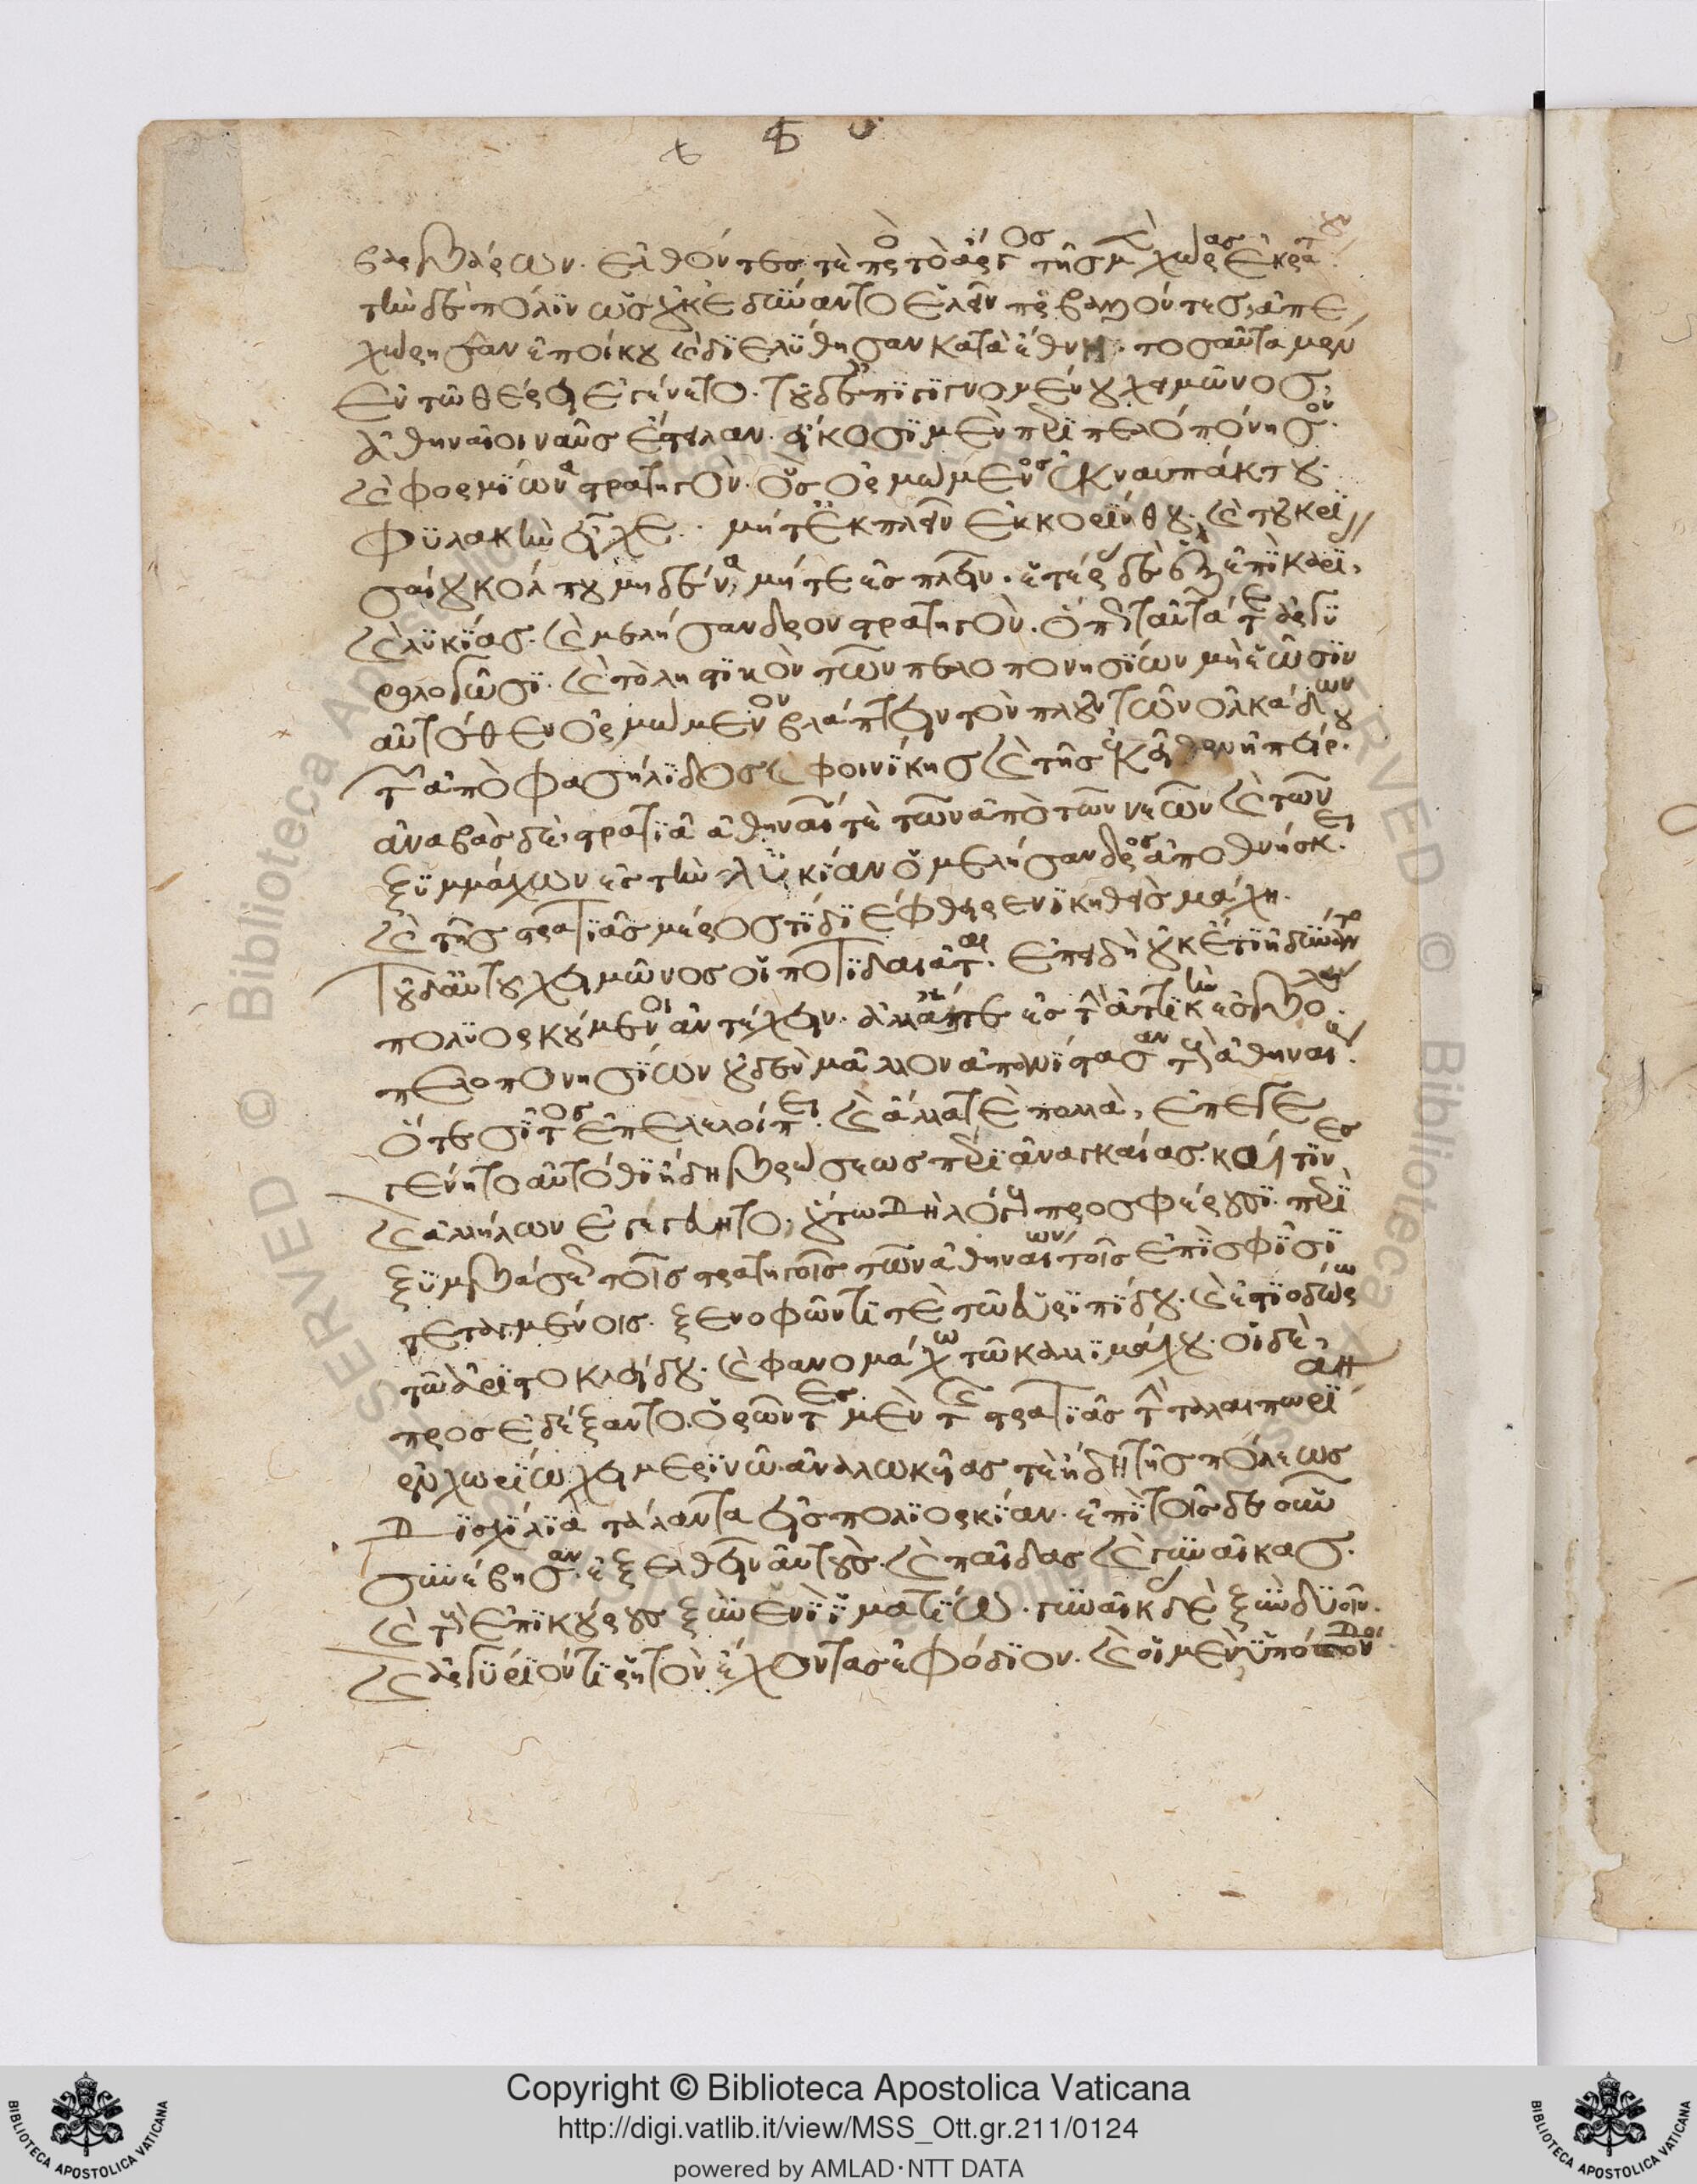 βαρβάρων. ἐλθόντες τὲ πρὸς τὸ ἄργος τῆς μὲν χώρας ἐκράτ
τὴν δὲ πόλιν ὡς οὐκ ἐδύναντο ἑλεῖν προσβαλόντες, ἀπε
χώρησαν ἐπ' οἴκου καὶ διελύθησαν κατὰ ἔθνη. τοσαῦτα μὲν
ἐν τῷ θέρει ἐγένετο. τοῦ δ' ἐπιγιγνομένου χειμῶνος,
ἀθηναῖοι ναῦς ἔστειλαν. εἴκοσι μὲν περὶ πελοπόνησον.
καὶ φορμίωνα στρατηγόν. ὃς ὁρμώμενος ἐκ ναυπάκτου.
φυλακὴν εἶχε. μήτ' ἐκπλεῖν ἐκ κορίνθου. καὶ τοῦ κρι
σαίου κόλπου μηδένα, μήτε ἐσπλεῖν. ἑτέρας δὲ ἓξ ἐπὶ καρί,
καὶ λυκίας. καὶ μελήσανδρον στρατηγόν. ὅπως ταῦτά τε ἀργυ
ρολογῶσι. καὶ τὸ ληστικὸν τῶν πελοπονησίων μὴ ἐῶσιν
αὐτόθεν ὁρμώμενον βλάπτειν τὸν πλοῦν τῶν ὁλκάδων
τῶν ἀπὸ φασήλιδος καὶ φοινίκης καὶ τῆς ἐκεῖθεν ἠπείρου.
ἀναβὰς δὲ, στρατιᾷ ἀθηναίων τὲ τῶν ἀπὸ τῶν νεῶν καὶ τῶν
ξυμμάχων ἐς τὴν λυκίαν ὁ μελήσανδρος ἀποθνήσκει.
καὶ τῆς στρατιᾶς μέρος τι διέφθειρε νικηθεὶς μάχῃ.
Τοῦ δ' αὐτοῦ χειμῶνος οἱ ποτιδαιᾶται. ἐπειδὴ οὐκέτι ἠδύναντο
πολιορκούμενοι ἀντέχειν. ἀλλ' αἵ τε ἐς τὴν ἀττικὴν ἐσβολαὶ
πελοπονησίων οὐδὲν μᾶλλον ἀπανίστασαν τοὺς ἀθηναίους.
ὅ τε σῖτος ἐπελελοίπει. καὶ ἄλλα τὲ πολλὰ, ἐπεγε
γένητο αὐτόθι ἤδη βρώσεως περὶ ἀναγκαίας. καί τινες
καὶ ἀλλήλων ἐγέγευντο, οὕτω δὴ λόγους προσφέρουσι. περὶ
ξυμβάσεως τοῖς στρατηγοῖς τῶν ἀθηναίων τοῖς ἐπὶ σφίσι
τεταγμένοις. ξενοφῶντι τὲ τῷ εὐριπίδου. καὶ ἑστιοδώρῳ
τῷ ἀριστοκλείδου. καὶ φανομάχῳ τῷ καλλιμάχου. οἱ δὲ,
προσεδέξαντο. ὁρῶντες μὲν τῆς στρατιᾶς τὴν ταλαιπωρίαν
ἐν χωρίῳ χειμερινῷ. ἀναλωκυίας τὲ ἤδη τῆς πόλεως
δισχίλια τάλαντα εἰς πολιορκίαν. ἐπὶ τοῖσδε οὖν
συνέβησαν. ἐξελθεῖν αὐτοὺς. καὶ παῖδας καὶ γυναῖκας.
καὶ τοὺς ἐπικούρους ξὺν ἑνὶ ἱματίῳ. γυναῖκας δὲ ξὺν δυοῖν.
καὶ ἀργύριόν τι ῥητὸν ἔχοντας ἐφόδιον. καὶ οἱ μὲν ὑπόσπονδοι
Copyright © Biblioteca Apostolica Vaticana
http://digi.vatlib.it/view/MSS_Ott.gr.211/0124
powered by AMLAD·NTT DATA
BIBLIOTECA APOSTOLICA VATICANA
BIBLIOTECA APOSTOLICA VATICANA